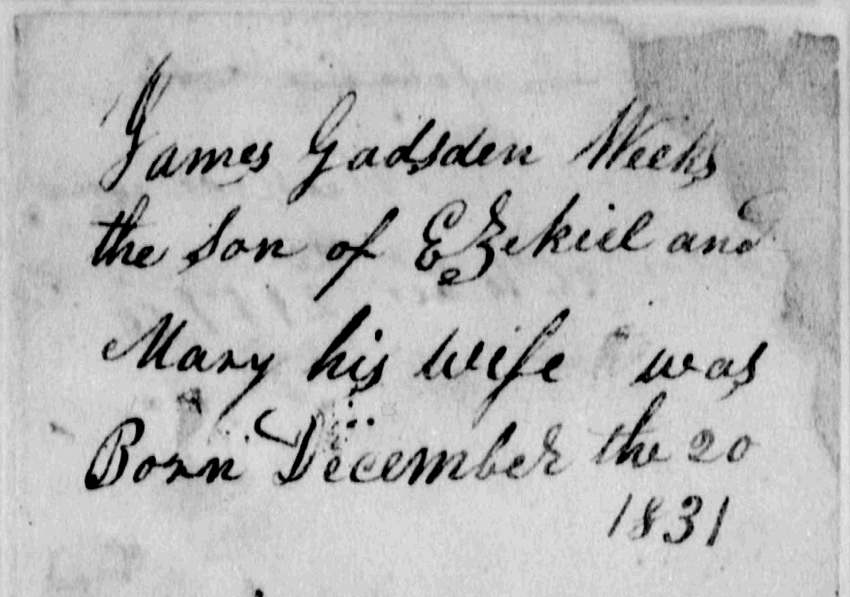 James Gadsden Weeks
the son of Ezekiel and
Mary his wife was
Born December the 20
1831